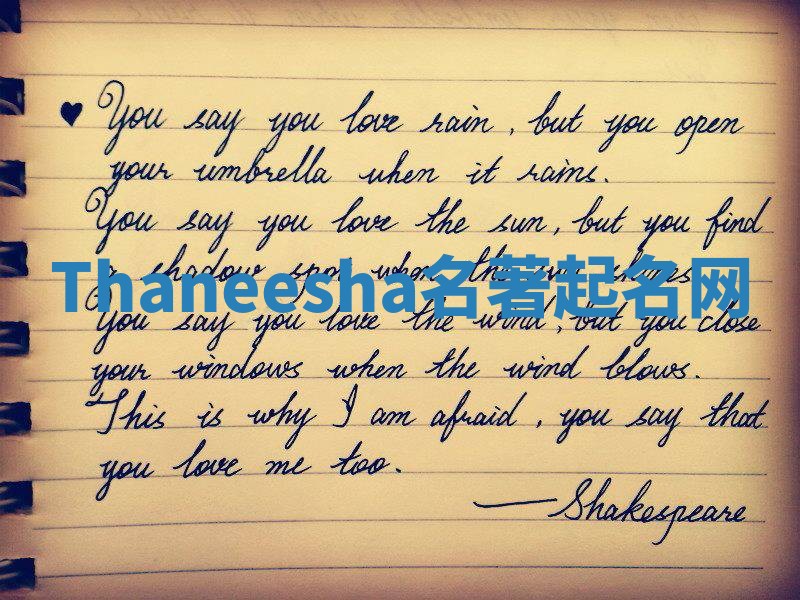 ♥ You say you love rain, but you open
your umbrella when it rains.
You say you love the sun, but you find
a shadow spot when the sun shines
Thaneesha名著起名网
You say you love the wind, but you close
your windows when the wind blows.
This is why I am afraid, you say that
you love me too.
— Shakespeare